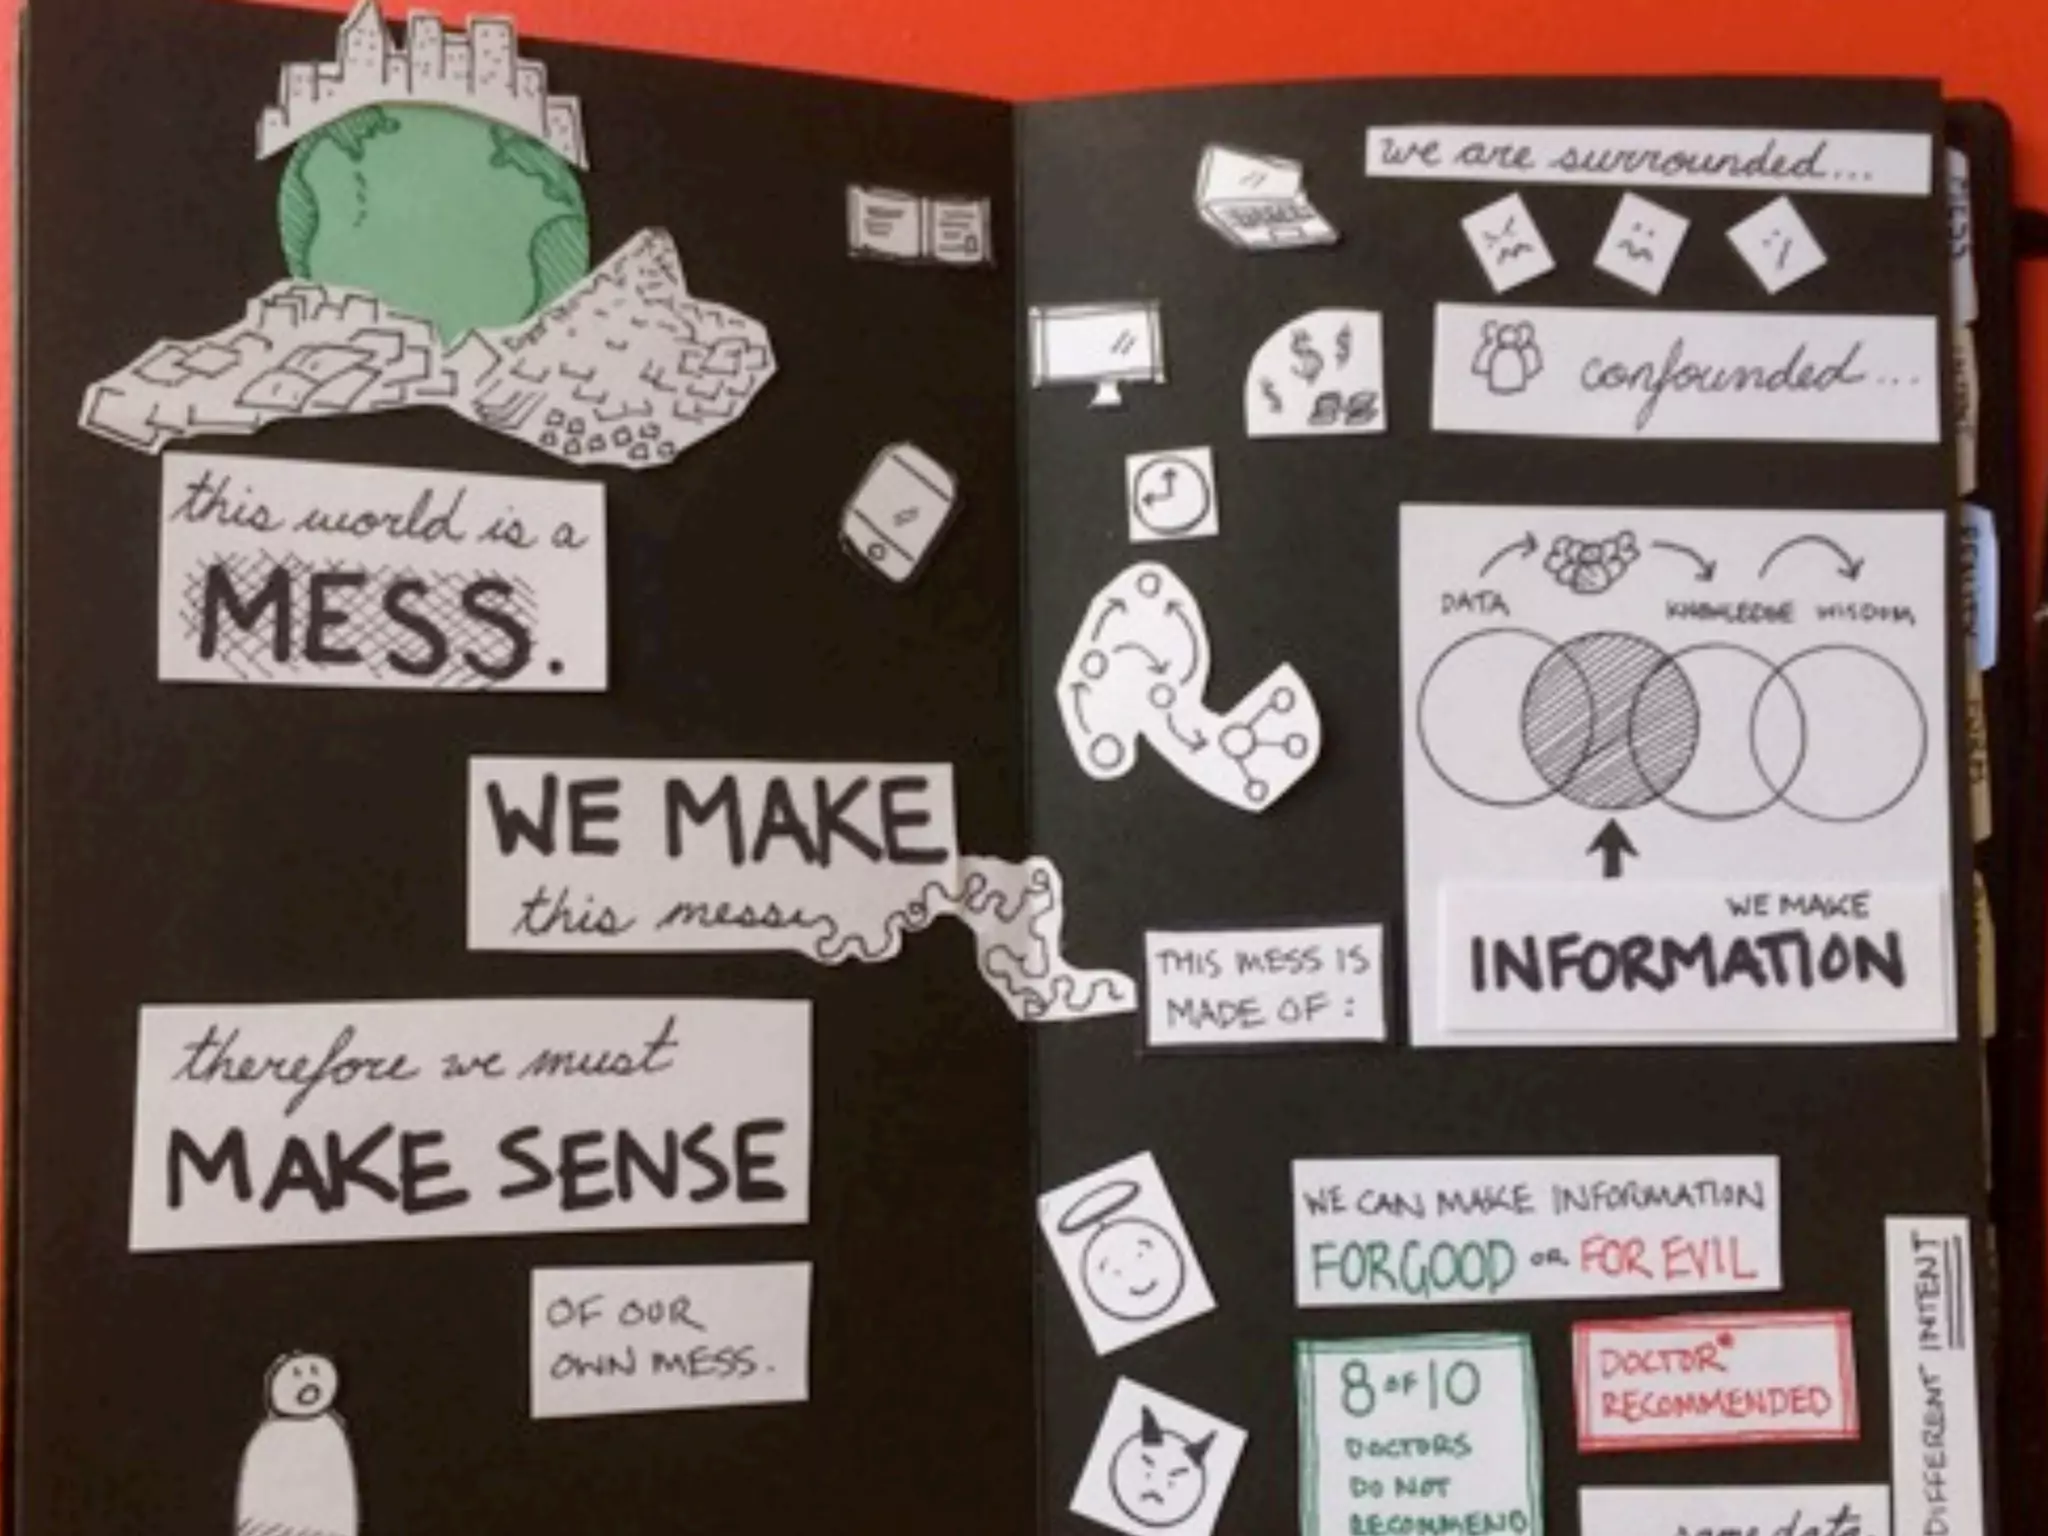 this world is a
MESS.
WE MAKE
this mess
therefore we must
MAKE SENSE
OF OUR
OWN MESS.
we are surrounded...
confounded...
DATA
KNOWLEDGE WISDOM
WE MAKE
INFORMATION
THIS MESS IS
MADE OF:
WE CAN MAKE INFORMATION
FOR GOOD OR FOR EVIL
8 OF 10
DOCTORS
DO NOT
RECOMMEND
DOCTOR*
RECOMMENDED
same data
DIFFERENT INTENT